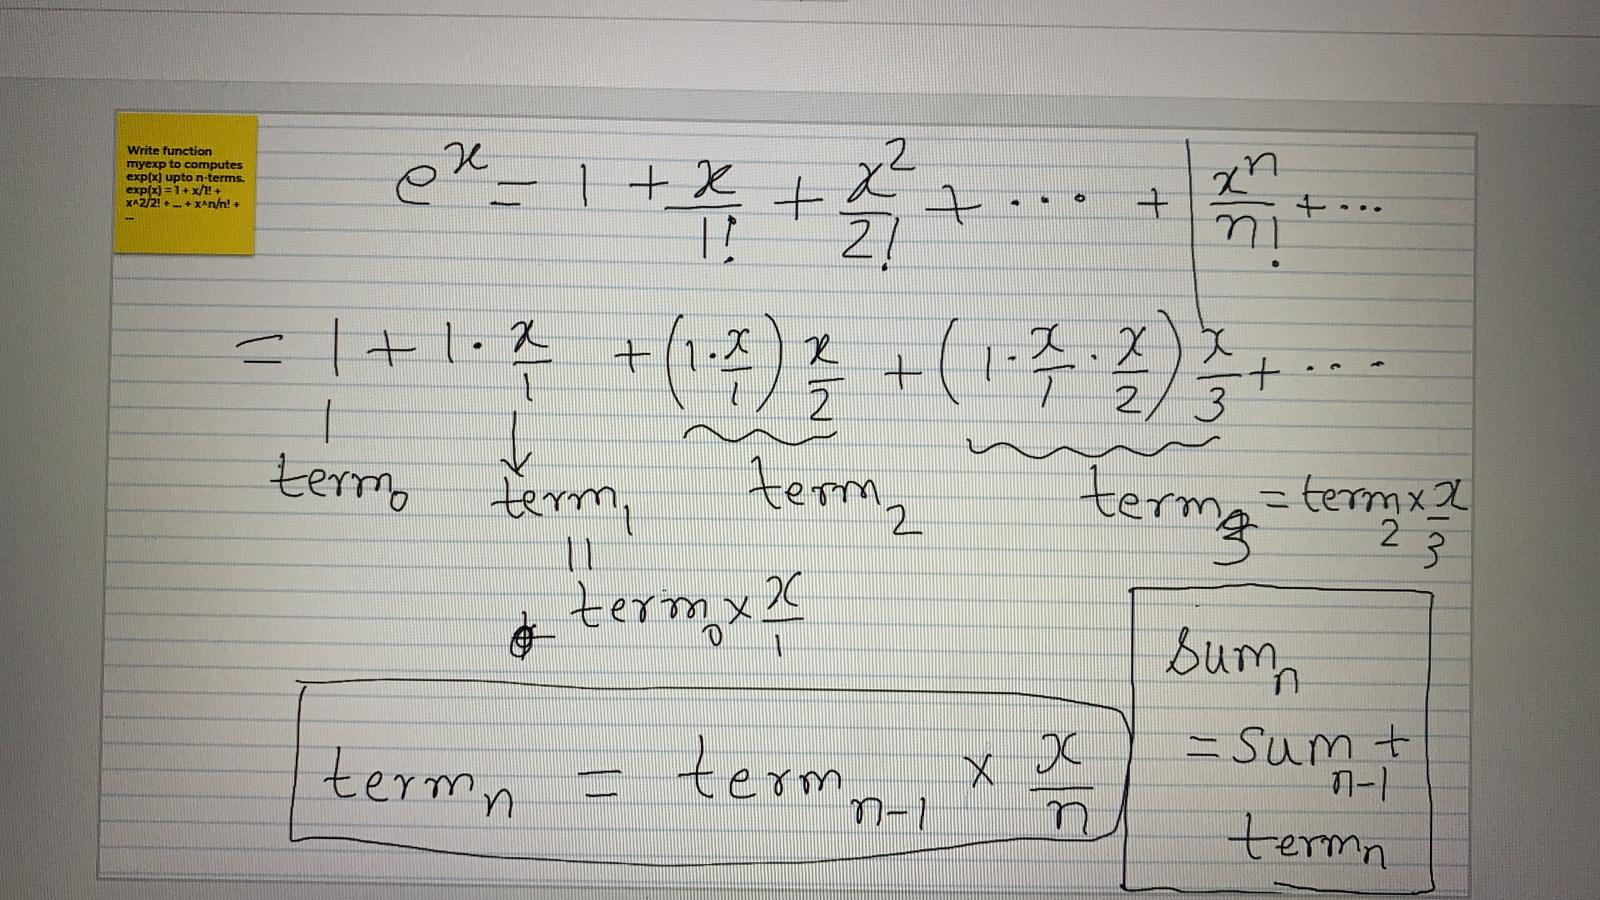 Write function
myexp to computes
exp(x) upto n-terms.
exp(x) = 1 + x/1! +
x^2/2! + ... + x^n/n! +
...
e^x = 1 + x/1! + x^2/2! + ... + x^n/n! + ...
= 1 + 1·x/1 + (1·x/1) x/2 + (1·x/1·x/2) x/3 + ...
term_0 term_1 term_2 term_3 = term_2 × x/3
||
term_0 × x/1
term_n = term_{n-1} × x/n
sum_n
= sum_{n-1} +
term_n